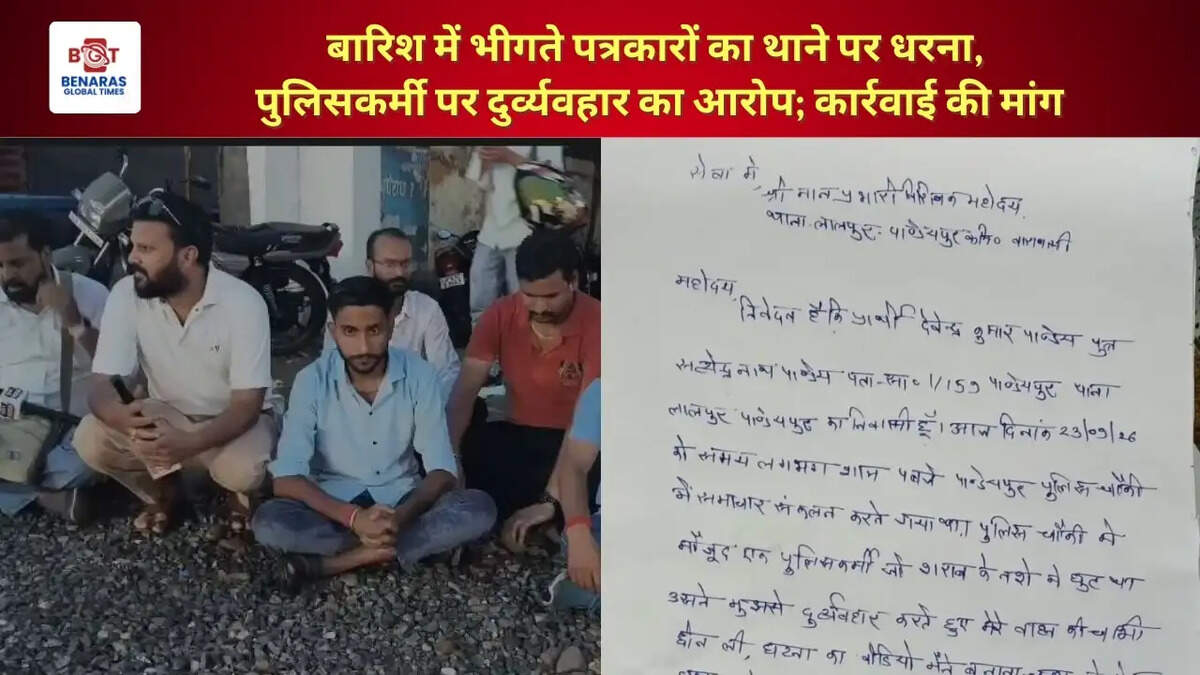 BGT
BENARAS
GLOBAL TIMES
बारिश में भीगते पत्रकारों का थाने पर धरना,
पुलिसकर्मी पर दुर्व्यवहार का आरोप; कार्रवाई की मांग
सेवा में,
श्री मान प्रभारी निरीक्षक महोदय,
थाना लालपुर- पाण्डेयपुर कमि० वाराणसी
महोदय,
निवेदन है कि प्रार्थी देवेन्द्र कुमार पाण्डेय पुत्र
सत्येंद्र नाथ पाण्डेय पता- 1/159 पाण्डेयपुर थाना
लालपुर पाण्डेयपुर का निवासी हूँ। आज दिनांक 23/09/26
को समय लगभग शाम पाण्डेयपुर पुलिस चौकी
में समाचार संकलन करने गया था। पुलिस चौकी में
मौजूद एक पुलिसकर्मी जो शराब के नशे में धुत था
उसने मुझसे दुर्व्यवहार करते हुए मेरे वाहन की चाभी
छीन ली, घटना का वीडियो मैंने बनाना